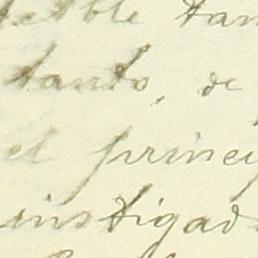 tible tan
tanto, de
el princip
instigad